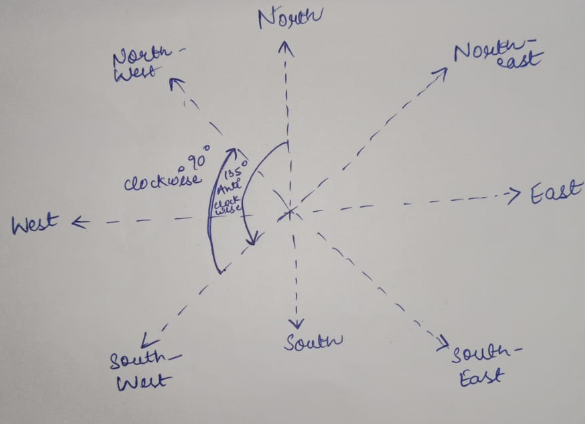 North
North-
West
North-
east
90°
clockwise
135°
Anti
clock
wise
West
East
South-
West
South
South-
East